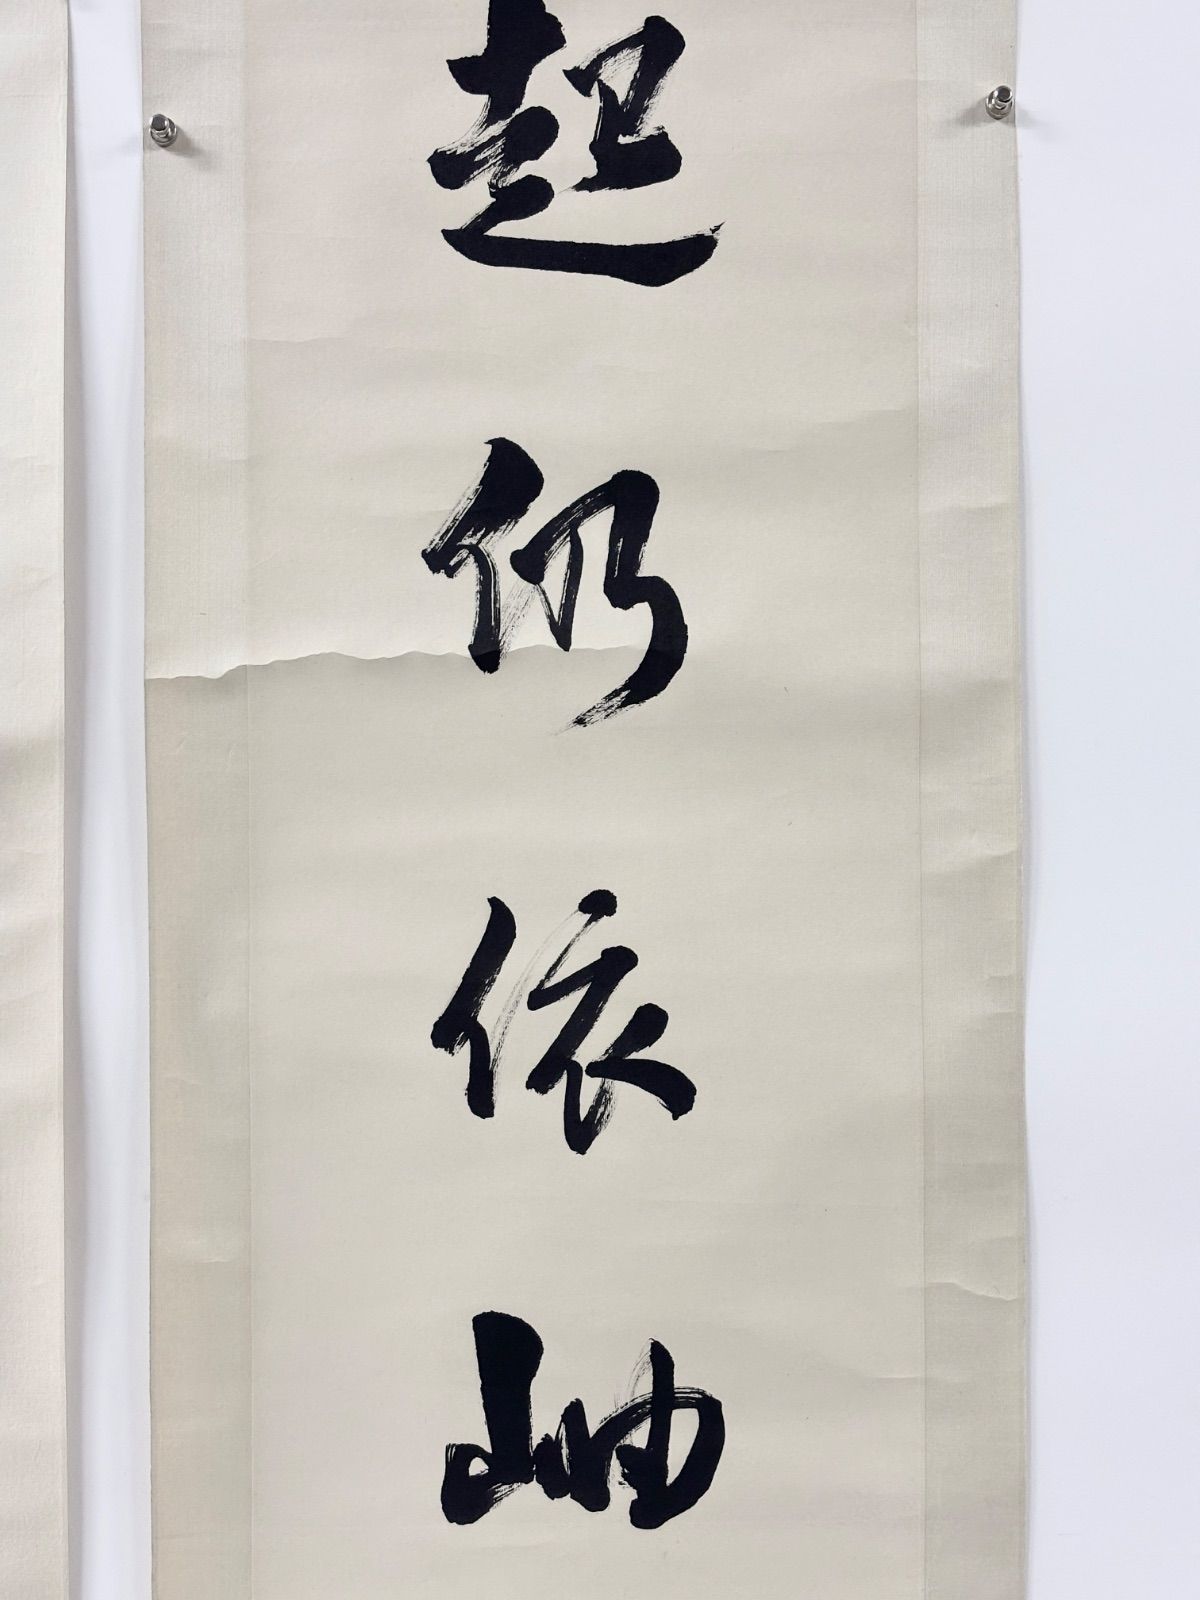 起仍依岫